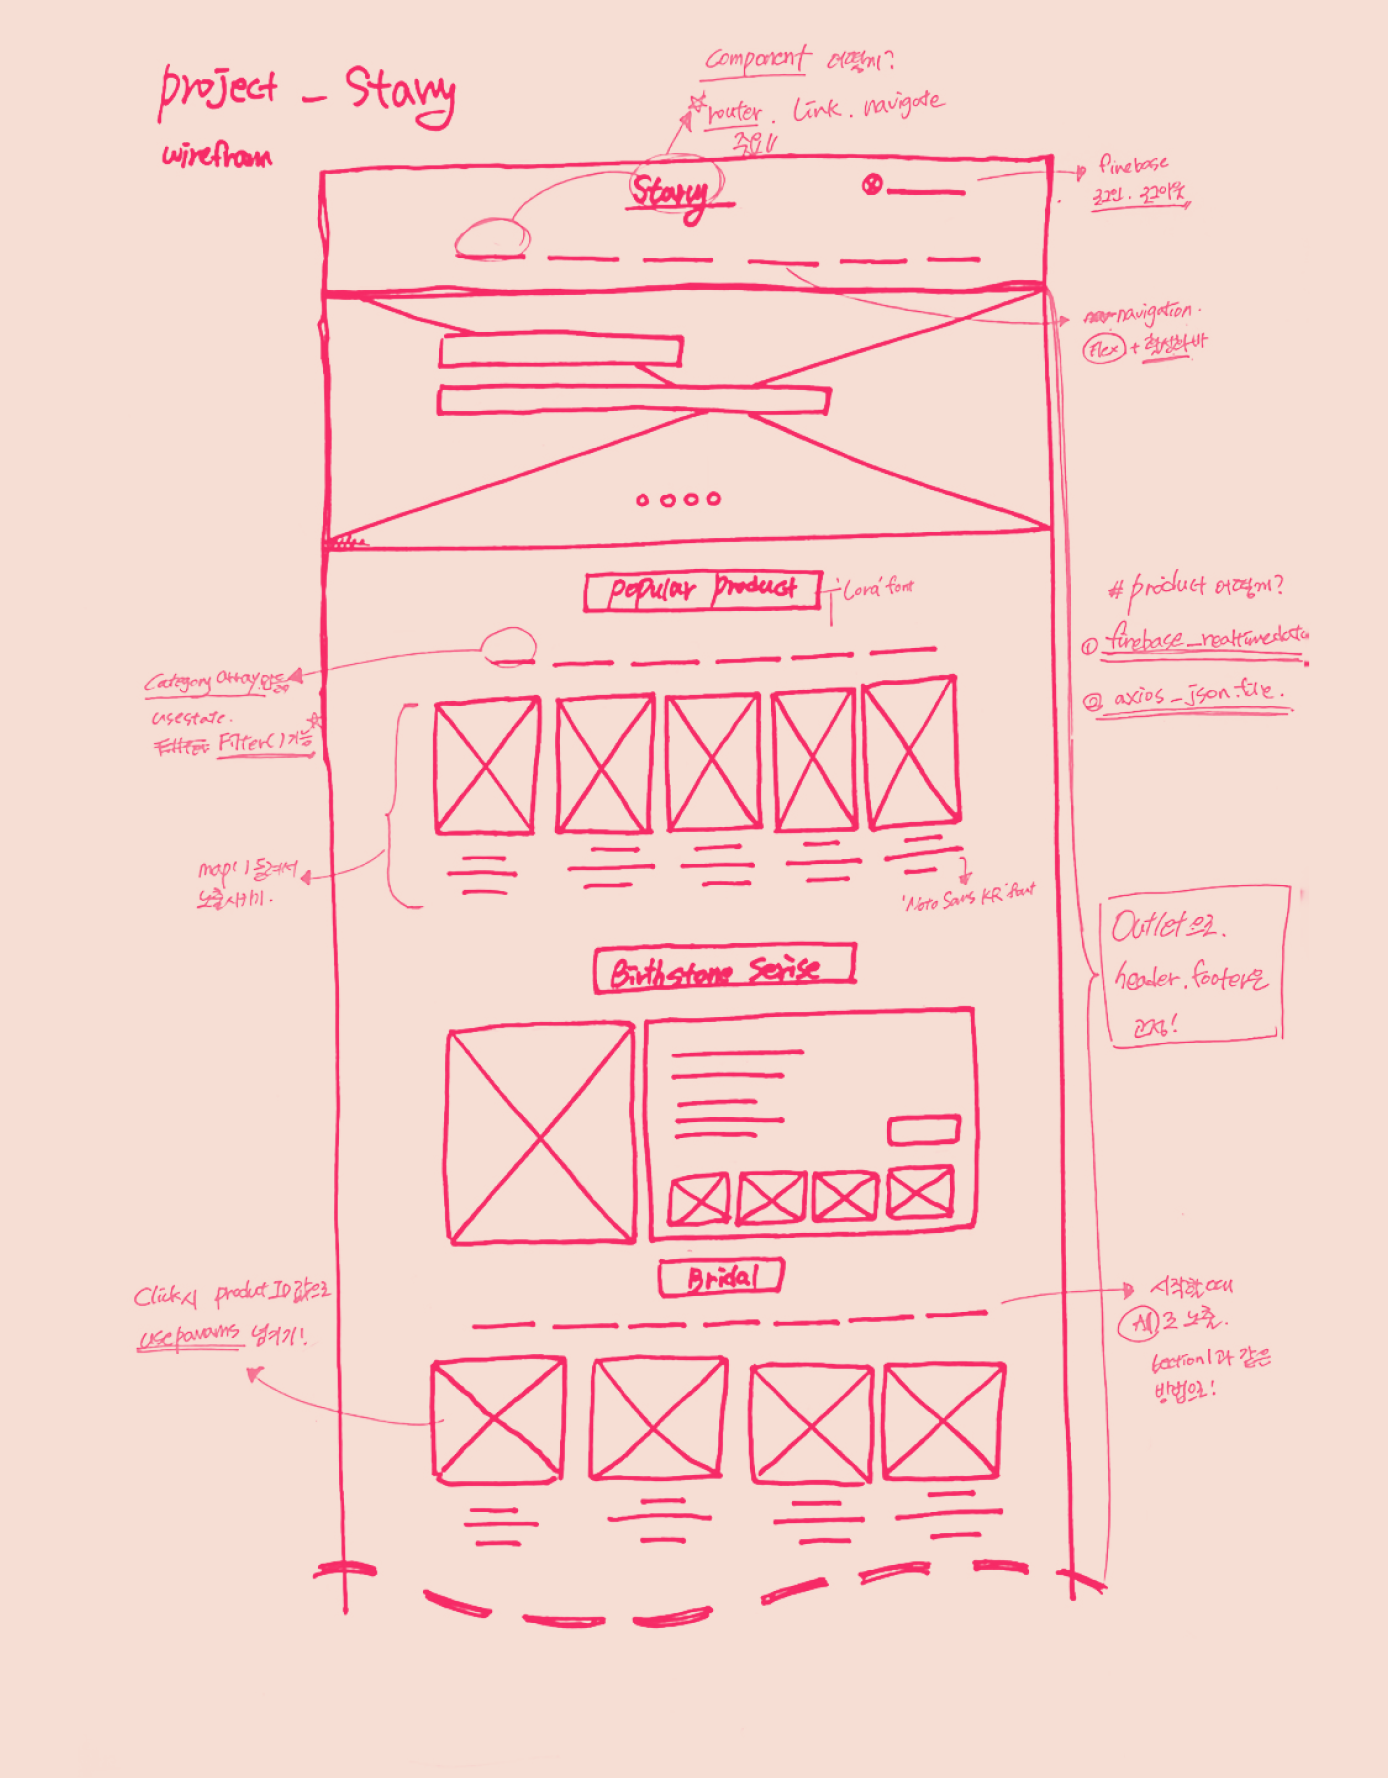 project _ Stary
wirefram
component 어떻게?
router . Link . navigate
주요!!
Stary
firebase
로그인 . 로그아웃
navigation .
Flex + 활성화 바
popular product
'Lora' font
# product 어떻게?
① firebase _ realtimedata
② axios _ json.file .
Category Array 만들
usestate .
Filter() 기능
map() 돌려서
노출시키기 .
'Noto Sans KR' font
Outlet으로 .
header . footer은
고정!
Birthstone Serise
Bridal
Click시 product ID 값으로
useparams 넘겨기!
시작할때
All 로 노출 .
section1과 같은
방법으로!